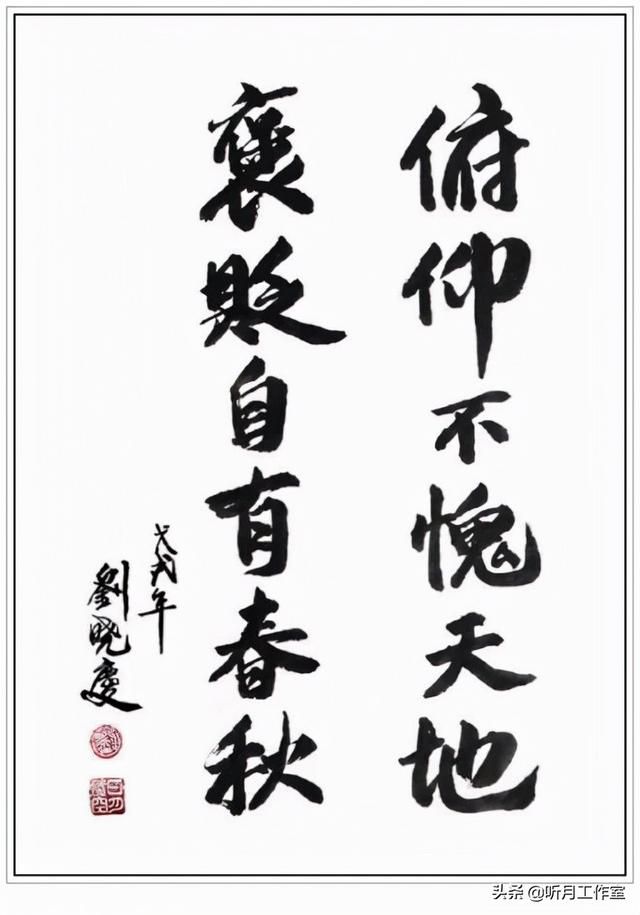 俯仰不愧天地
褒貶自有春秋
戊戌年
劉晓慶
头条 @听月工作室